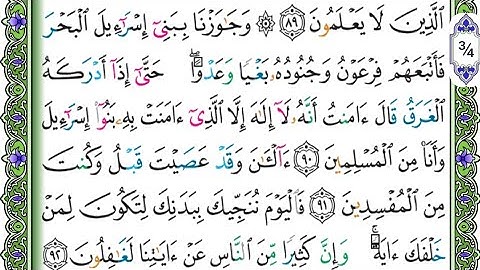 ٱلَّذِينَ لَا يَعۡلَمُونَ ٨٩ ۞ وَجَٰوَزۡنَا بِبَنِيٓ إِسۡرَٰٓءِيلَ ٱلۡبَحۡرَ
فَأَتۡبَعَهُمۡ فِرۡعَوۡنُ وَجُنُودُهُۥ بَغۡيٗا وَعَدۡوًاۖ حَتَّىٰٓ إِذَآ أَدۡرَكَهُ
ٱلۡغَرَقُ قَالَ ءَامَنتُ أَنَّهُۥ لَآ إِلَٰهَ إِلَّا ٱلَّذِيٓ ءَامَنَتۡ بِهِۦ بَنُوٓاْ إِسۡرَٰٓءِيلَ
وَأَنَا۠ مِنَ ٱلۡمُسۡلِمِينَ ٩٠ ءَآلۡـَٰٔنَ وَقَدۡ عَصَيۡتَ قَبۡلُ وَكُنتَ
مِنَ ٱلۡمُفۡسِدِينَ ٩١ فَٱلۡيَوۡمَ نُنَجِّيكَ بِبَدَنِكَ لِتَكُونَ لِمَنۡ
خَلۡفَكَ ءَايَةٗۚ وَإِنَّ كَثِيرٗا مِّنَ ٱلنَّاسِ عَنۡ ءَايَٰتِنَا لَغَٰفِلُونَ ٩٢
3/4